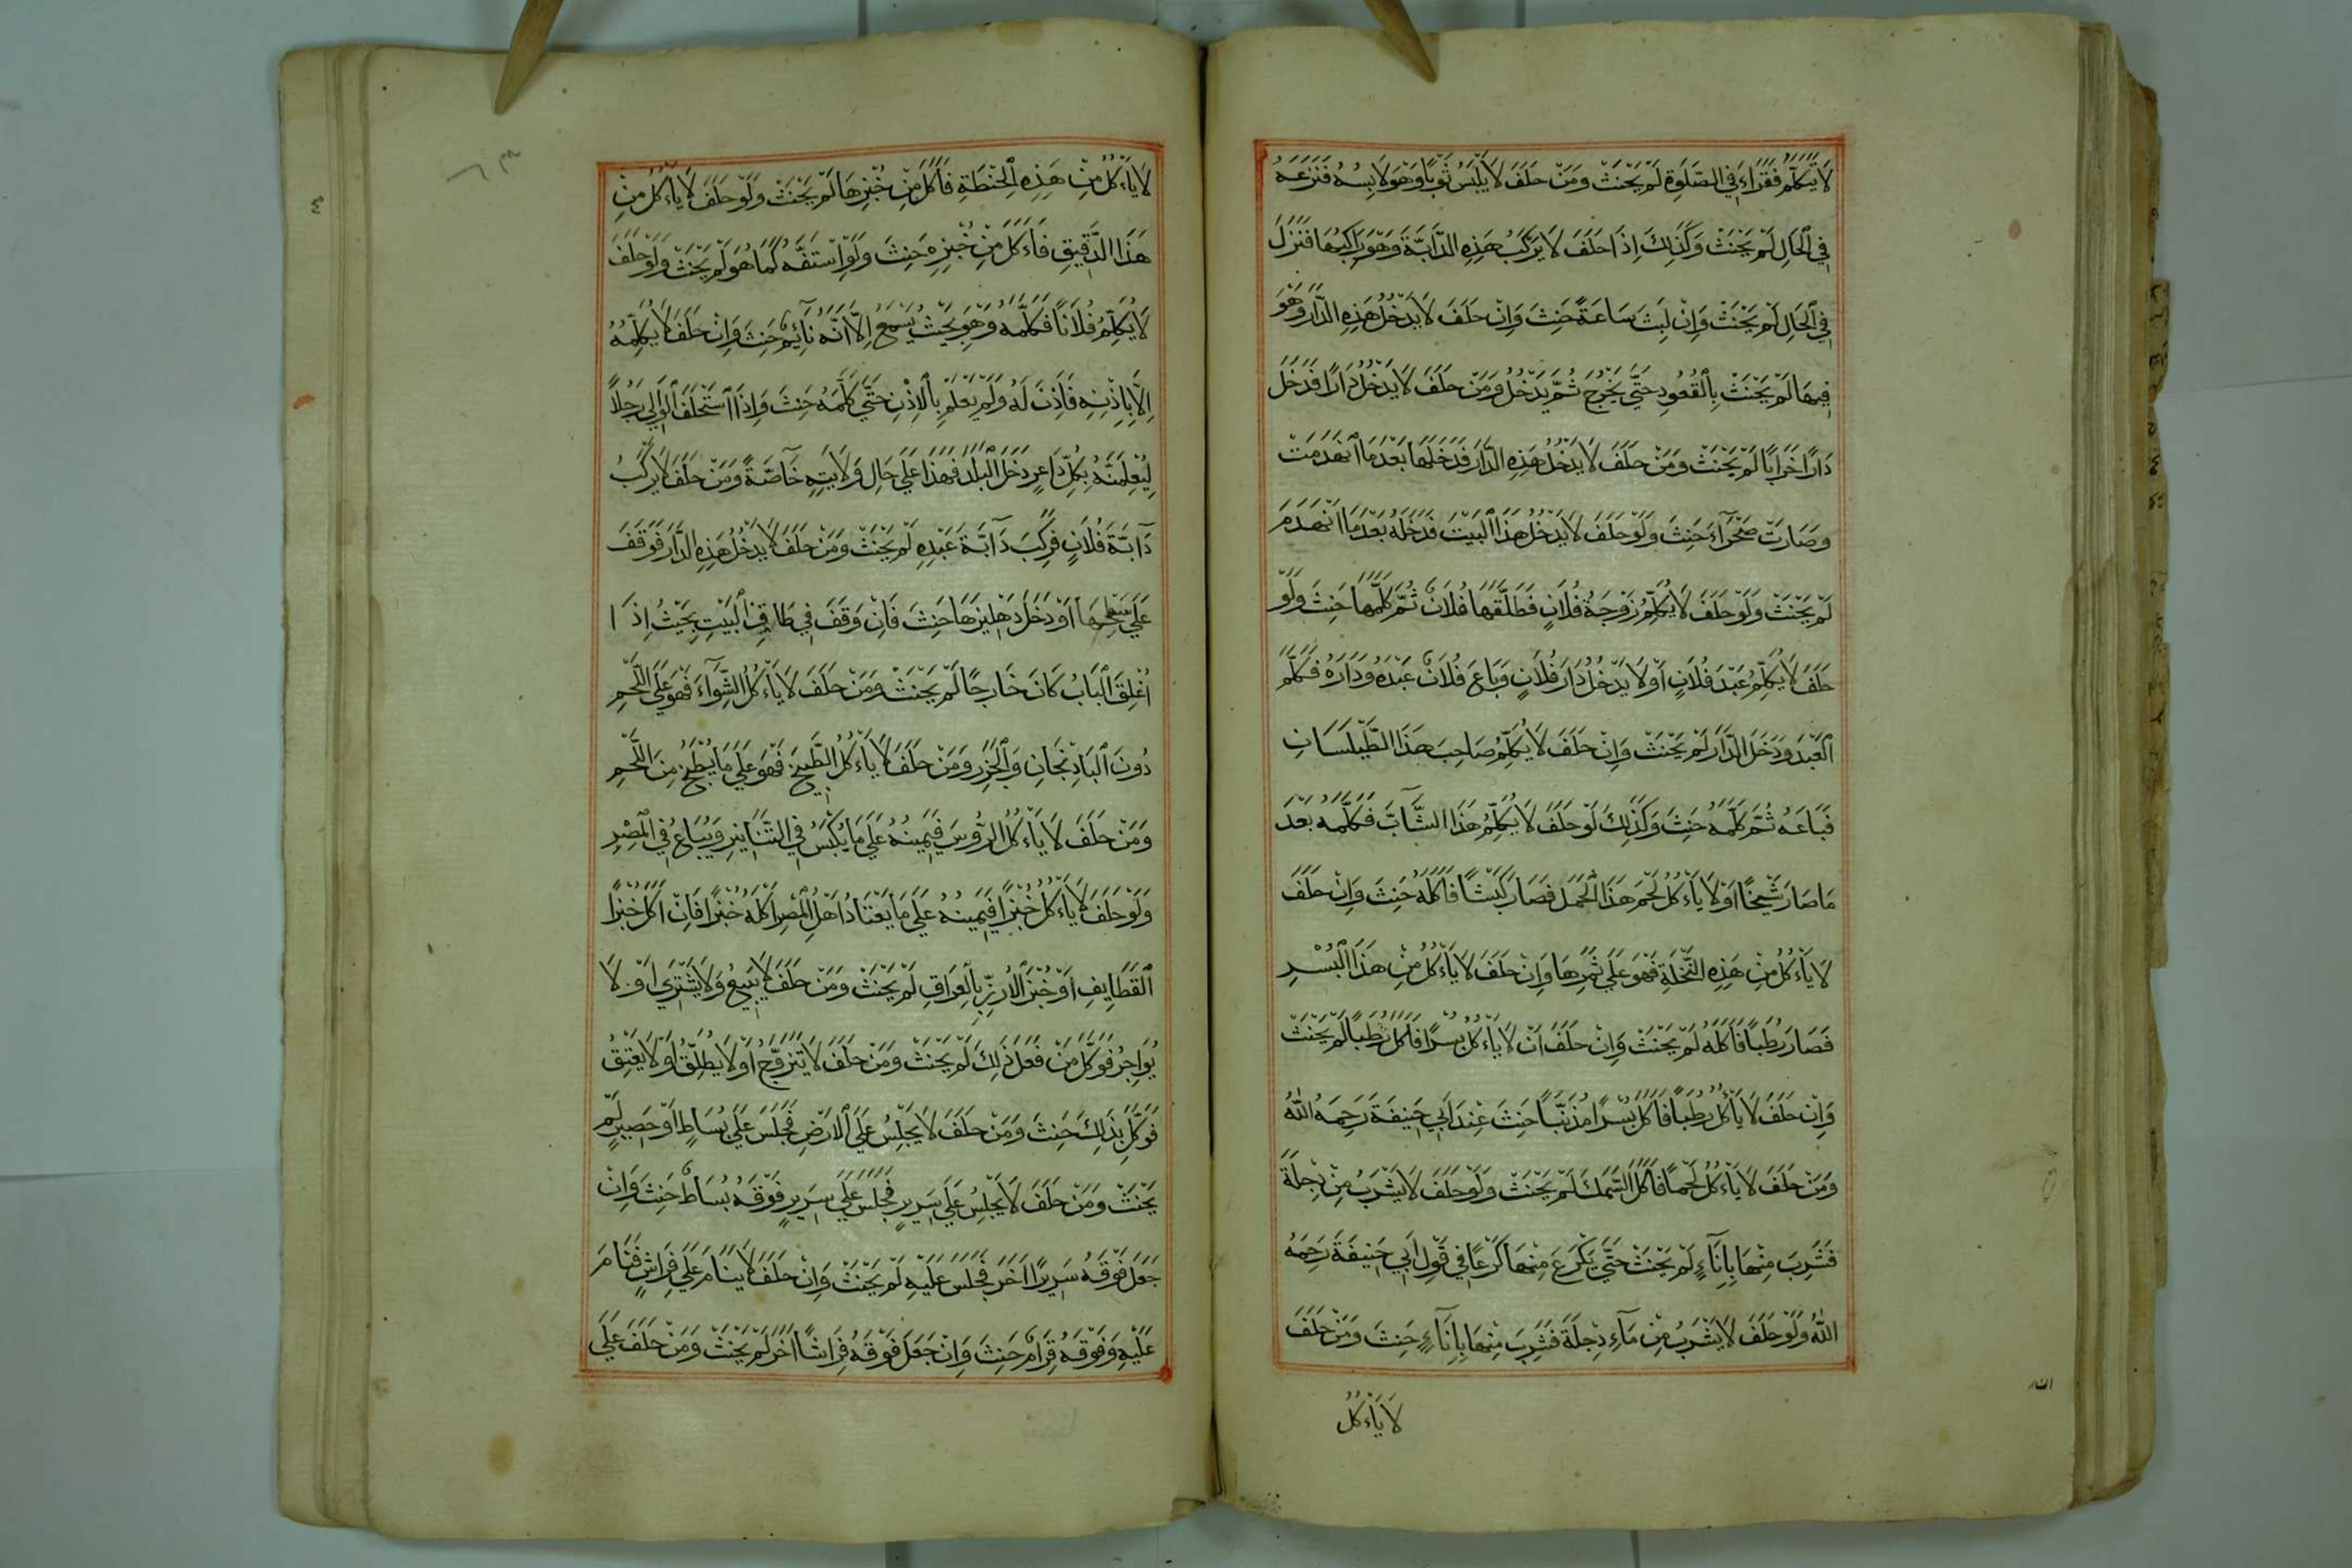 لَا يَتَكَلَّمُ فَقَرَاءَ فِي الصَّلٰوةِ لَمْ يَحْنَثْ وَمَنْ حَلَفَ لَا يَلْبَسُ ثَوْبًا وَهُوَ لَابِسُهُ فَنَزَعَهُ
فِي الْحَالِ لَمْ يَحْنَثْ وَكَذٰلِكَ اِذَا حَلَفَ لَا يَرْكَبُ هَذِهِ الدَّابَّةَ وَهُوَ رَاكِبُهَا فَنَزَلَ
فِي الْحَالِ لَمْ يَحْنَثْ وَاِنْ لَبِثَ سَاعَةً حَنِثَ وَاِنْ حَلَفَ لَا يَدْخُلُ هَذِهِ الدَّارَ وَهُوَ
فِيهَا لَمْ يَحْنَثْ بِالْقُعُودِ حَتَّى يَخْرُجَ ثُمَّ يَدْخُلُ وَمَنْ حَلَفَ لَا يَدْخُلُ دَارًا فَدَخَلَ
دَارًا خَرَابًا لَمْ يَحْنَثْ وَمَنْ حَلَفَ لَا يَدْخُلُ هَذِهِ الدَّارَ فَدَخَلَهَا بَعْدَ مَا انْهَدَمَتْ
وَصَارَتْ صَحْرَآءَ حَنِثَ وَلَوْ حَلَفَ لَا يَدْخُلُ هَذَا الْبَيْتَ فَدَخَلَهُ بَعْدَ مَا انْهَدَمَ
لَمْ يَحْنَثْ وَلَوْ حَلَفَ لَا يُكَلِّمُ زَوْجَةُ فُلَانٍ فَطَلَّقَهَا فُلَانٌ ثُمَّ كَلَّمَهَا حَنِثَ وَلَوْ
حَلَفَ لَا يُكَلِّمُ عَبْدَ فُلَانٍ اَوْ لَا يَدْخُلُ دَارَ فُلَانٍ وَبَاعَ فُلَانٌ عَبْدَهُ وَدَارَهُ فَكَلَّمَ
الْعَبْدَ وَدَخَلَ الدَّارَ لَمْ يَحْنَثْ وَاِنْ حَلَفَ لَا يُكَلِّمُ صَاحِبَ هَذَا الطَّيْلَسَانِ
فَبَاعَهُ ثُمَّ كَلَّمَهُ حَنِثَ وَكَذٰلِكَ لَوْ حَلَفَ لَا يُكَلِّمُ هَذَا الشَّآبَّ فَكَلَّمَهُ بَعْدَ
مَا صَارَ شَيْخًا اَوْ لَا يَأْءكُلُ لَحْمَ هَذَا الْحَمَلِ فَصَارَ كَبْشًا فَاَكَلَهُ حَنِثَ وَاِنْ حَلَفَ
لَا يَأْءكُلُ مِنْ هَذِهِ النَّخْلَةِ فَهُوَ عَلَى ثَمَرِهَا وَاِنْ حَلَفَ لَا يَأْءكُلُ مِنْ هَذَا الْبُسْرِ
فَصَارَ رُطَبًا فَاَكَلَهُ لَمْ يَحْنَثْ وَاِنْ حَلَفَ اَنْ لَا يَأْءكُلُ بُسْرًا فَاَكَلَ رُطَبًا لَمْ يَحْنَثْ
وَاِنْ حَلَفَ لَا يَأْكُلُ رُطَبًا فَاَكَلَ بُسْرًا مُذَنَّبًا حَنِثَ عِنْدَ اَبِي حَنِيفَةَ رَحِمَهُ اللّٰهُ
وَمَنْ حَلَفَ لَا يَأْءكُلُ لَحْمًا فَاَكَلَ السَّمَكَ لَمْ يَحْنَثْ وَلَوْ حَلَفَ لَا يَشْرَبُ مِنْ دِجْلَةَ
فَشَرِبَ مِنْهَا بِاِنَآءٍ لَمْ يَحْنَثْ حَتَّى يَكْرَعَ مِنْهَا كَرْعًا فِي قَوْلِ اَبِي حَنِيفَةَ رَحِمَهُ
اللّٰهُ وَلَوْ حَلَفَ لَا يَشْرَبُ مِنْ مَآءِ دِجْلَةَ فَشَرِبَ مِنْهَا بِاِنَآءٍ حَنِثَ وَمَنْ حَلَفَ
لَا يَأْءكُلُ
لَا يَأْءكُلُ مِنْ هَذِهِ الْحِنْطَةِ فَاَكَلَ مِنْ خُبْزِهَا لَمْ يَحْنَثْ وَلَوْ حَلَفَ لَا يَأْءكُلُ مِنْ
هَذَا الدَّقِيقِ فَاَءكَلَ مِنْ خُبْزِهِ حَنِثَ وَلَوِ اسْتَفَّهُ كَمَا هُوَ لَمْ يَحْنَثْ وَلَوْ حَلَفَ
لَا يُكَلِّمُ فُلَانًا فَكَلَّمَهُ وَهُوَ بِحَيْثُ يَسْمَعُ اِلَّا اَنَّهُ نَآئِمٌ حَنِثَ وَاِنْ حَلَفَ لَا يُكَلِّمُهُ
اِلَّا بِاِذْنِهِ فَاَذِنَ لَهُ وَلَمْ يَعْلَمْ بِالْاِذْنِ حَتَّى كَلَّمَهُ حَنِثَ وَاِذَا اسْتَحْلَفَ الْوَالِي رَجُلًا
لِيُعْلِمَنَّهُ بِكُلِّ دَاعِرٍ دَخَلَ الْبَلَدَ فَهَذَا عَلَى حَالِ وَلَايَتِهِ خَآصَّةً وَمَنْ حَلَفَ لَا يَرْكَبُ
دَآبَّةَ فُلَانٍ فَرَكِبَ دَآبَّةَ عَبْدِهِ لَمْ يَحْنَثْ وَمَنْ حَلَفَ لَا يَدْخُلُ هَذِهِ الدَّارَ فَوَقَفَ
عَلَى سَطْحِهَا اَوْ دَخَلَ دِهْلِيزَهَا حَنِثَ فَاِنْ وَقَفَ فِي طَاقِ الْبَيْتِ بِحَيْثُ اِذَا
اُغْلِقَ الْبَابُ كَانَ خَارِجًا لَمْ يَحْنَثْ وَمَنْ حَلَفَ لَا يَأْءكُلُ الشِّوَآءَ فَهُوَ عَلَى اللَّحْمِ
دُونَ الْبَاذِنْجَانِ وَالْجَزَرِ وَمَنْ حَلَفَ لَا يَأْءكُلُ الطَّبِيخَ فَهُوَ عَلَى مَا يُطْبَخُ مِنَ اللَّحْمِ
وَمَنْ حَلَفَ لَا يَأْءكُلُ الرُّوسَ فَيَمِينُهُ عَلَى مَا يُكْبَسُ فِي التَّنَانِيرِ وَيُبَاعُ فِي الْمِصْرِ
وَلَوْ حَلَفَ لَا يَأْءكُلُ خُبْزًا فَيَمِينُهُ عَلَى مَا يَعْتَادُ اَهْلُ الْمِصْرِ اَكْلَهُ خُبْزًا فَاِنْ اَكَلَ خُبْزَ
الْقَطَايِفِ اَوْ خُبْزَ الْاَرُزِّ بِالْعِرَاقِ لَمْ يَحْنَثْ وَمَنْ حَلَفَ لَا يَبِيعُ وَلَا يَشْتَرِي اَوْ لَا
يُوَاجِرُ فَوَكَّلَ مَنْ فَعَلَ ذٰلِكَ لَمْ يَحْنَثْ وَمَنْ حَلَفَ لَا يَتَزَوَّجُ اَوْ لَا يُطَلِّقُ اَوْ لَا يُعْتِقُ
فَوَكَّلَ بِذٰلِكَ حَنِثَ وَمَنْ حَلَفَ لَا يَجْلِسُ عَلَى الْاَرْضِ فَجَلَسَ عَلَى بُسَاطٍ اَوْ حَصِيرٍ لَمْ
يَحْنَثْ وَمَنْ حَلَفَ لَا يَجْلِسُ عَلَى سَرِيرٍ فَجَلَسَ عَلَى سَرِيرٍ فَوْقَهُ بُسَاطٌ حَنِثَ وَاِنْ
جَعَلَ فَوْقَهُ سَرِيرًا اٰخَرَ فَجَلَسَ عَلَيْهِ لَمْ يَحْنَثْ وَاِنْ حَلَفَ لَا يَنَامُ عَلَى فِرَاشٍ فَنَامَ
عَلَيْهِ وَفَوْقَهُ قِرَامٌ حَنِثَ وَاِنْ جَعَلَ فَوْقَهُ فِرَاشًا اٰخَرَ لَمْ يَحْنَثْ وَمَنْ حَلَفَ عَلَى